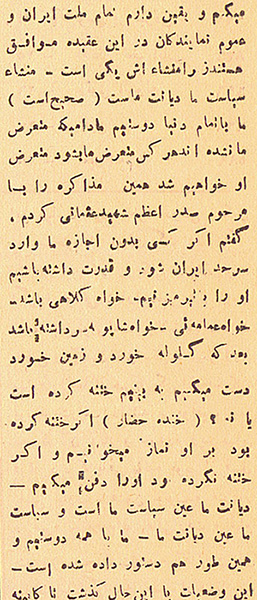 میگیرم و یقین دارم تمام ملت ایران و
عموم نمایندکان در این عقیده موافق
هستند زرا منشاء اش یکی است - منشاء
سیاست ما دیانت ماست ( صحیح است )
ما با تمام دنیا دوستیم مادامیکه متعرض
ما نشده اند هر کس متعرض ما بشود متعرض
او خواهیم شد همین مذاکره را با
مرحوم صدر اعظم شهید عثمانی کردم ،
گفتم اکر کسی بدون اجازه ما وارد
سرحد ایران شود و قدرت داشته باشیم
او را با تیر میزنیم - خواه کلاهی باشد -
خواه عمامه ئی - خواه شاپو بسر داشته باشد
بعد که گلوله خورد و زمین خورد
دست میکنیم به بینیم ختنه کرده است
یا نه ؟ ( خنده حضار ) اکر ختنه کرده
بود بر او نماز میخوانیم و اکر
ختنه نکرده بود اورا دفن میکنیم -
دیانت ما عین سیاست ما است و سیاست
ما عین دیانت ما - ما با همه دوستیم و
همین طور هم دستور داده شده است -
این وضعیات با این حال گذشت تا